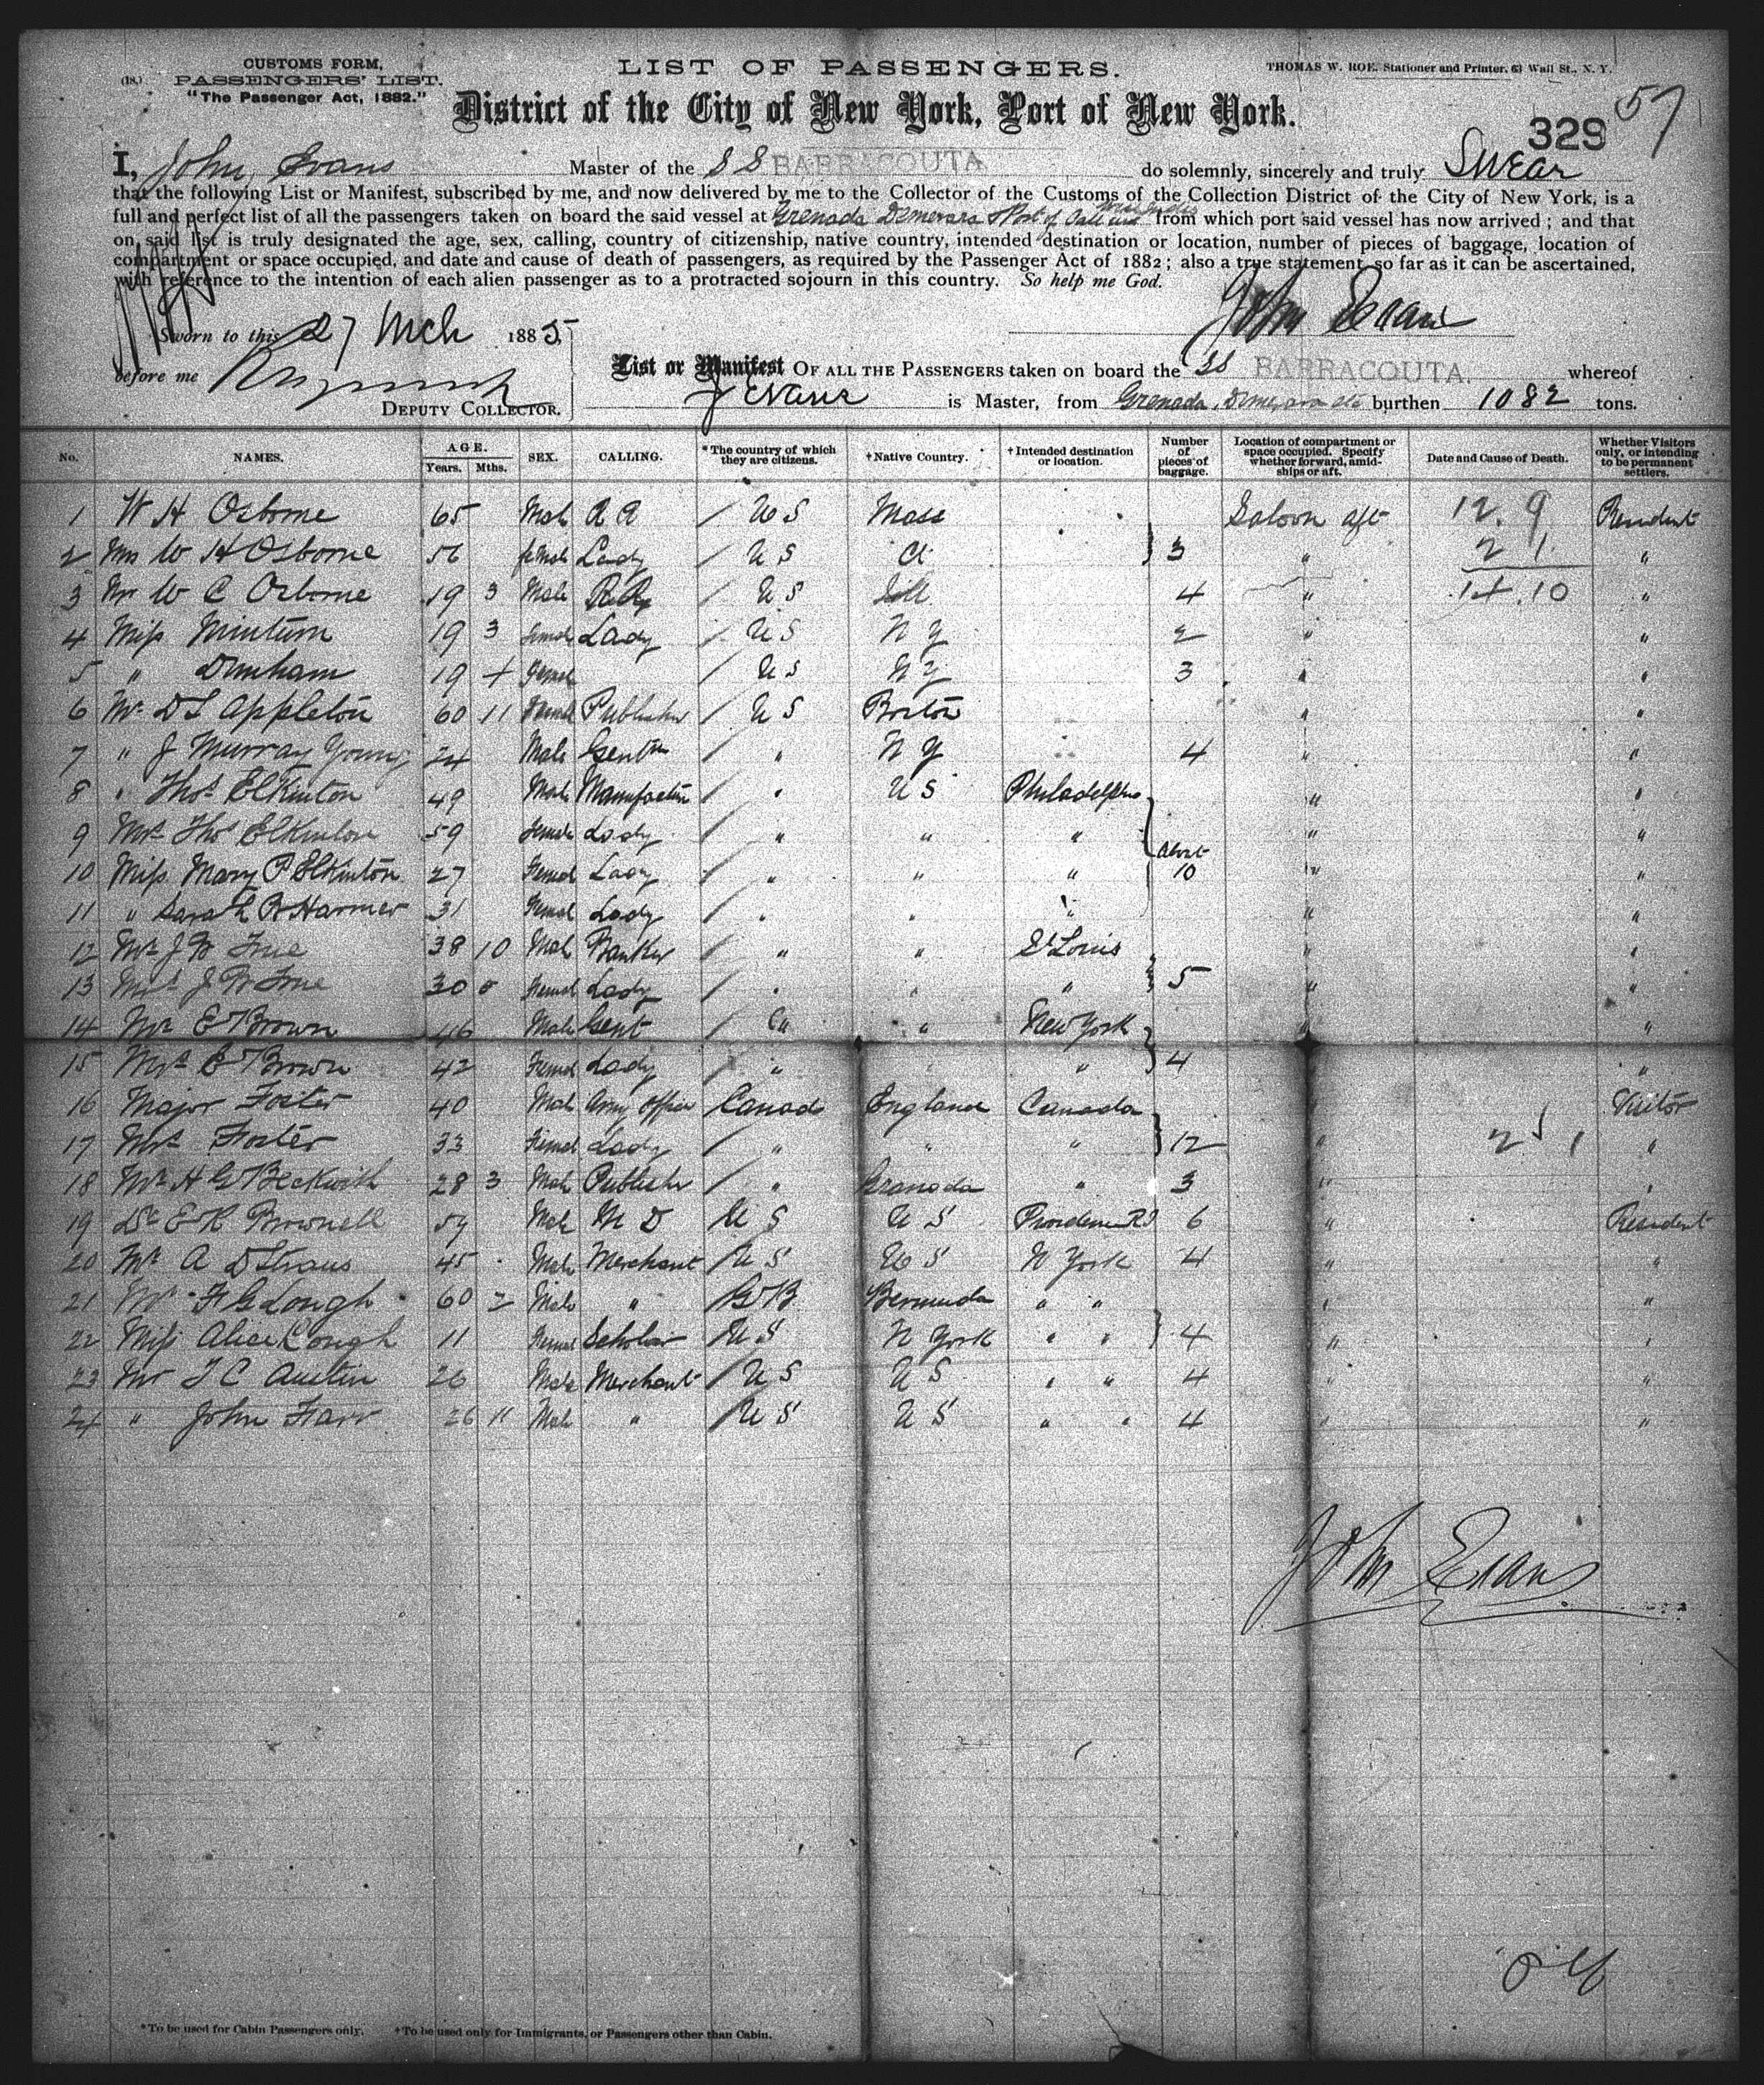 CUSTOMS FORM,
(18.) PASSENGERS' LIST.
"The Passenger Act, 1882."
LIST OF PASSENGERS.
THOMAS W. ROE, Stationer and Printer, 63 Wall St., N. Y.
District of the City of New York, Port of New York.
57
329
I, John Evans Master of the SS BARRACOUTA do solemnly, sincerely and truly Swear
that the following List or Manifest, subscribed by me, and now delivered by me to the Collector of the Customs of the Collection District of the City of New York, is a
full and perfect list of all the passengers taken on board the said vessel at Grenada Demerara & Port of Call from which port said vessel has now arrived; and that
on said list is truly designated the age, sex, calling, country of citizenship, native country, intended destination or location, number of pieces of baggage, location of
compartment or space occupied, and date and cause of death of passengers, as required by the Passenger Act of 1882; also a true statement, so far as it can be ascertained,
with reference to the intention of each alien passenger as to a protracted sojourn in this country. So help me God.
John Evans
Sworn to this 27 Mch 1885,
before me
DEPUTY COLLECTOR.
List or Manifest OF ALL THE PASSENGERS taken on board the SS BARRACOUTA. whereof
J Evans is Master, from Grenada, Demerara etc burthen 1082 tons.
No. NAMES. AGE. Years. Mths. SEX. CALLING. *The country of which they are citizens. †Native Country. †Intended destination or location. Number of pieces of baggage. Location of compartment or space occupied. Specify whether forward, amidships or aft. Date and Cause of Death. Whether Visitors only, or intending to be permanent settlers.
1 W H Osborne 65 Male U S Mass Saloon aft 12. 9 Resident
2 Mrs W H Osborne 56 female Lady U S Ct 3 " 2 1 "
3 Mr W C Osborne 19 3 Male U S Ill 4 " 14.10 "
4 Miss Minturn 19 3 female Lady / U S N Y 2 " "
5 " Dunham 19 + female / U S N Y 3 " "
6 Mr D S Appleton 60 11 Publisher / U S Boston " "
7 " J Murray Young 24 Male Gentm / " N Y 4 " "
8 " Thos Elkinton 49 Male Manufactur / " U S Philadelphia " "
9 Mrs Thos Elkinton 59 female Lady / " " " " "
10 Miss Mary P Elkinton 27 Femal Lady / " " " About 10 " "
11 " Sarah B Harmer 31 Femal Lady / " " " " "
12 Mr J W True 38 10 Male Banker / " " St Louis " "
13 Mrs J W True 30 0 Femal Lady / " " " 5 " "
14 Mr E Brown 46 Male Gent / " " New York " "
15 Mrs E Brown 42 Femal Lady / " " " 4 " "
16 Major Foster 40 Male Army Officer Canada England Canada Visitor
17 Mrs Foster 33 Femal Lady / " " " 12 " 2 1 "
18 Mr H G Beckwith 28 3 Male Publisher / " Granada " 3 " "
19 Dr E R Brownell 59 Male M D U S U S Providence RI 6 " Resident
20 Mr A D Straus 45 Male Merchant / U S U S N York 4 " "
21 Mr F G Lough 60 2 Male " G B Bermuda " " " "
22 Miss Alice Lough 11 Femal Scholar U S N York " " 4 " "
23 Mr T C Austin 26 Male Merchant / U S U S " " 4 " "
24 " John Farr 26 11 Male " / U S U S " " 4 " "
John Evans
*To be used for Cabin Passengers only. †To be used only for Immigrants, or Passengers other than Cabin.